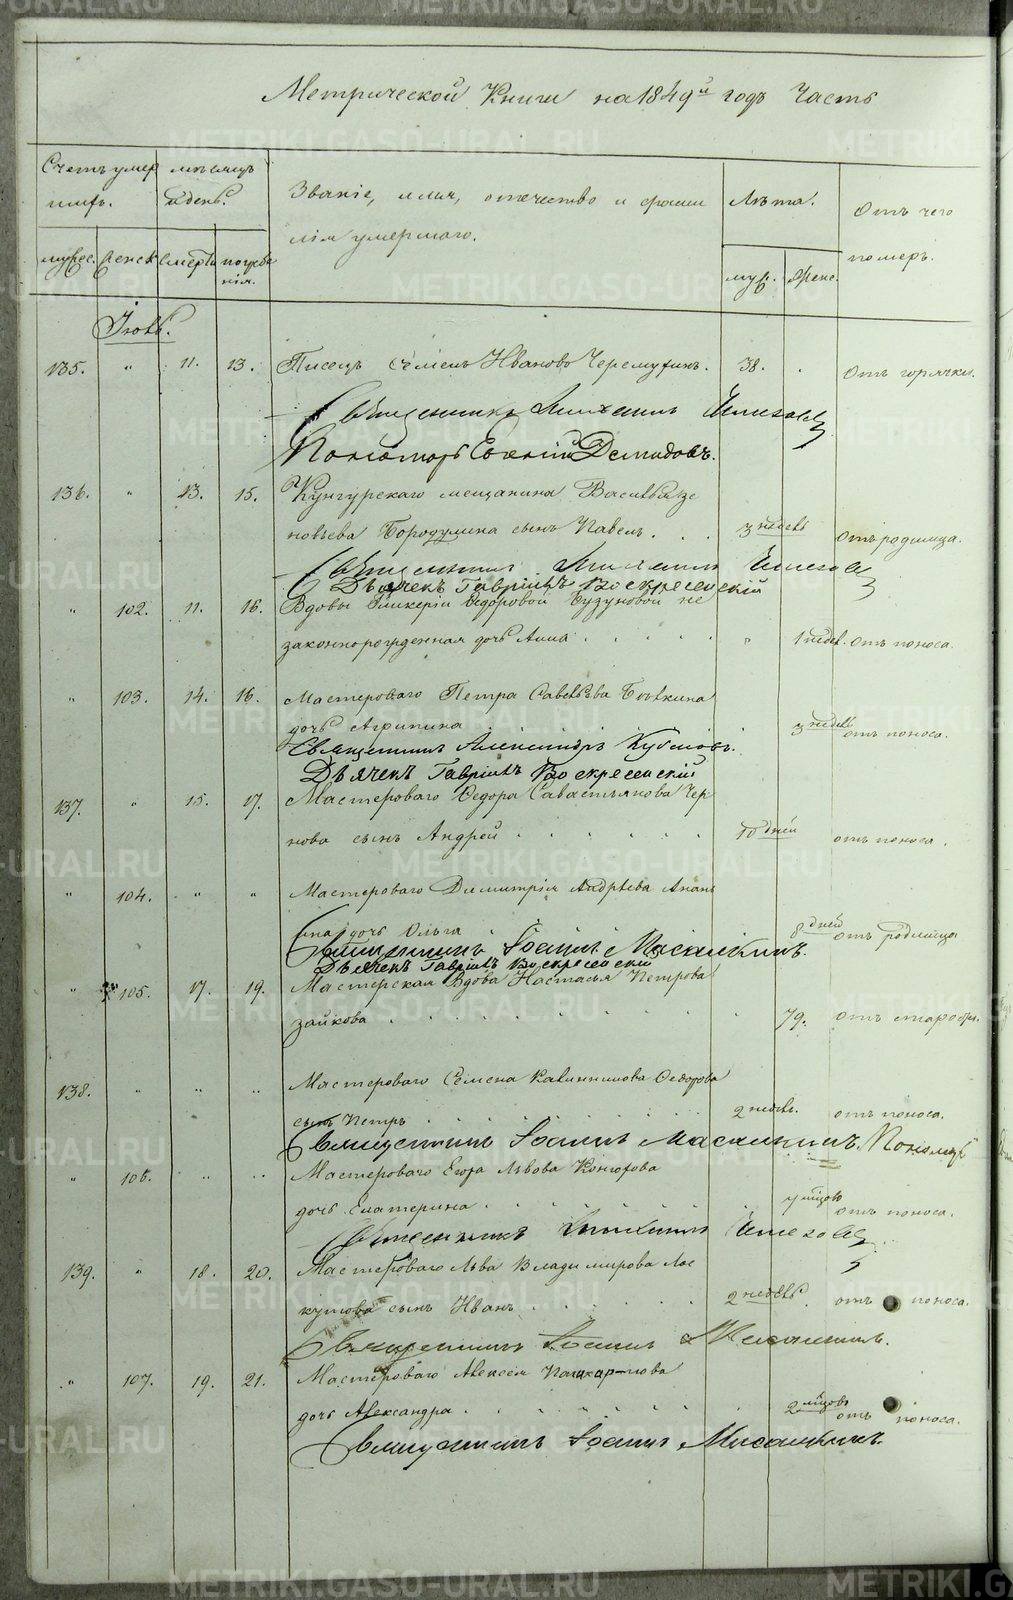 Метрической Книги на 1849й годъ Часть
Счетъ умер мѣсяцъ
шихъ. и день.
Званіе, имя, отечество и фами Лѣта. Отъ чего
лія умершаго. померъ.
мужес. женск смерти погребе муж. женс.
нія.
Іюль.
135. " 11. 13. Писецъ Семенъ Ивановъ Черемухинъ. 38. . отъ горячки.
Священникъ Михаилъ
Пономарь Евгеній Демидовъ.
136. " 13. 15. Кунгурскаго мещанина Василья Зе
новьева Бородулина сынъ Павелъ . . . 3 недель отъ родимца.
Священникъ Михаилъ
Дьячекъ Гавріилъ Воскресенскій
" 102. 11. 16. Вдовы Гликеріи Ѳедоровой Бузуновой не
законнорожденная дочь Анна . . . . . " 1 недел. отъ поноса.
" 103. 14. 16. Мастероваго Петра Савельева
дочь Агрипина . . . 3 недель отъ поноса.
Священникъ Александръ
Дьячекъ Гавріилъ Воскресенскій
137. " 15. 17. Мастероваго Ѳедора Савастьянова Чер
нова сынъ Андрей . . . . . . 10 дней отъ поноса.
" 104. " " Мастероваго Димитрія Андрѣева Анань
ина дочь Ольга . . . 8 дней отъ родимца
Священникъ Іоаннъ
Дьячекъ Гавріилъ Воскресенскій
" 105. 17. 19. Мастерская Вдова Настасья Петрова
Зайкова . . . . . . . . 79. отъ старости.
138. " " " Мастероваго Семена Калинникова Ѳедорова
сынъ Петръ . . . . . . . 2 недель. отъ поноса.
Священникъ Іоаннъ Пономарь
" 106. " " Мастероваго Егора Львова
дочь Екатерина . . . . . . мѣсяцовъ отъ поноса.
Священникъ Михаилъ
139. " 18. 20. Мастероваго Льва Владимирова Лос
кутова сынъ Иванъ . . . . . . 2 недель отъ поноса.
Священникъ Іоаннъ
" 107. 19. 21. Мастероваго Алексея
дочь Александра . . . . . . . 2 мѣсяцовъ отъ поноса.
Священникъ Іоаннъ
METRIKI.GASO-URAL.RU